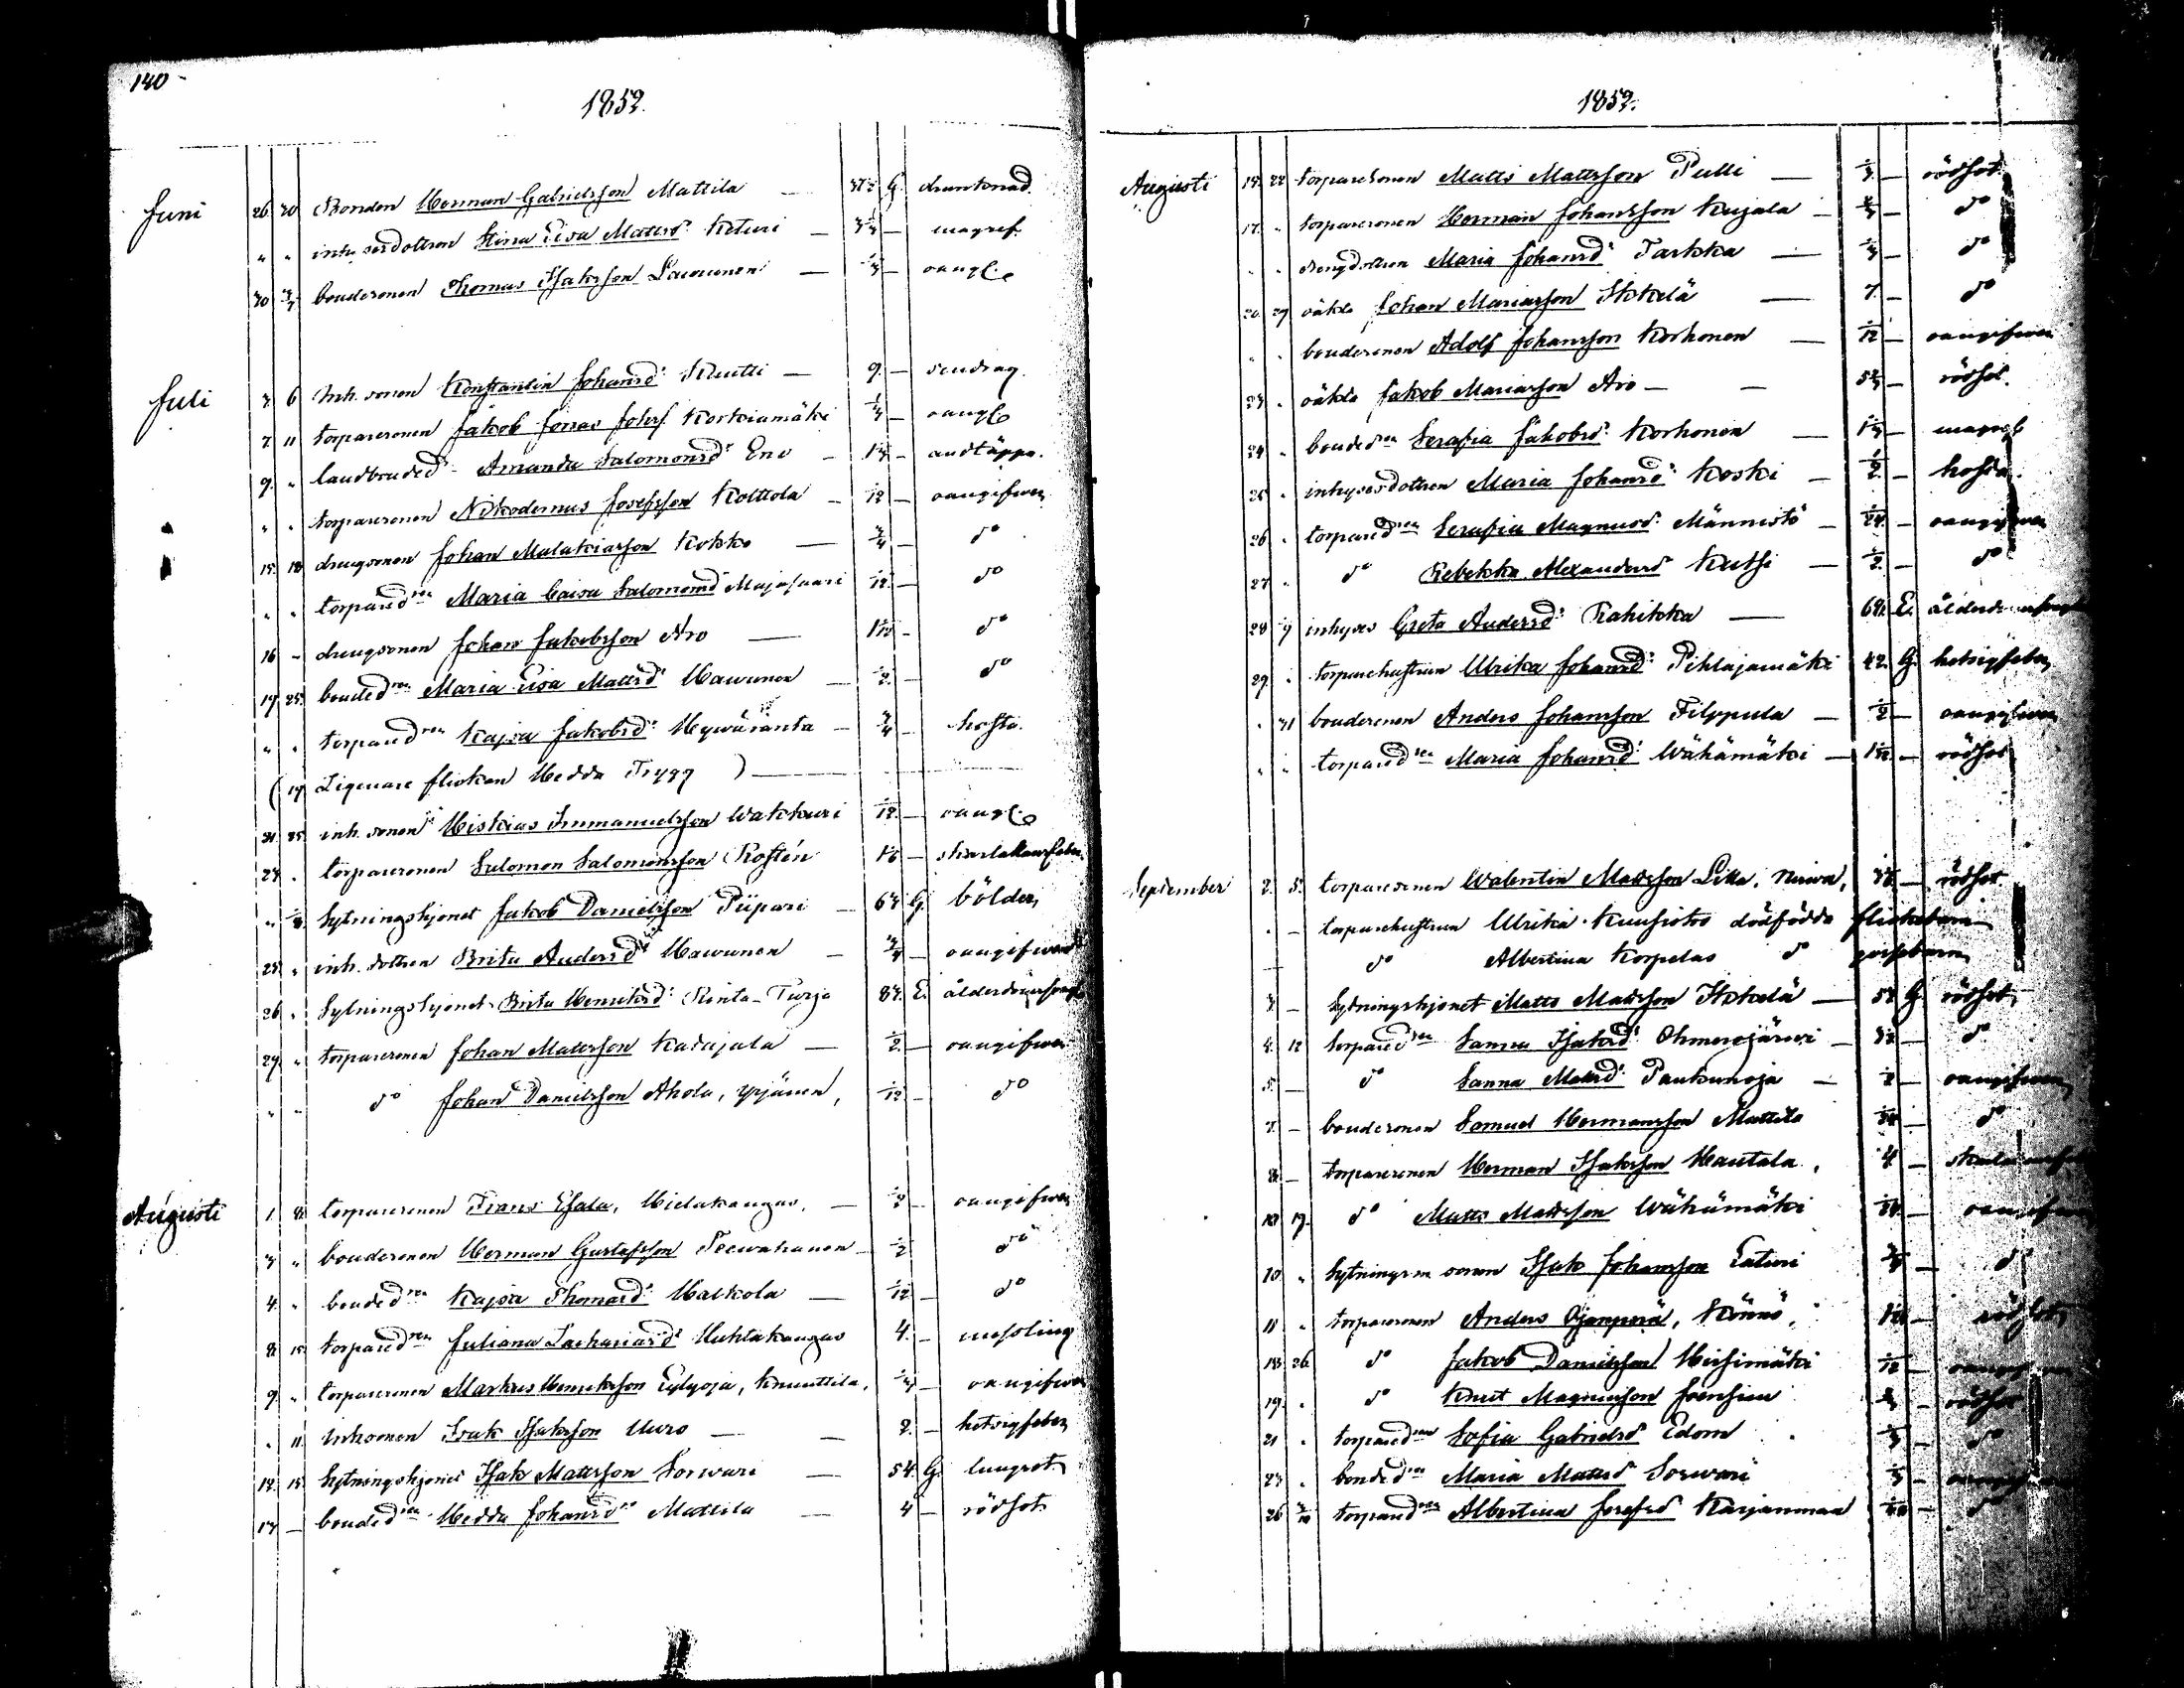 140
1852.
Juni 26 30 Bonden Herman Gabrielsson Mattila — G. drunknad.
" " dottren Stina Lisa Mattsd: Keturi — — magref.
30 bondesonen Thomas Isaksson Lawonen — — oangl.
Juli 3 6 Inh. sonen Konstantin Johansd: Knutti — 9. — sendrag.
7 11 torparesonen Jakob Jonas Johsf. Korkiamäki — oangl.
9. " landbonded: Amanda Salomonsd: Eno — — andtäppa.
" " torparesonen Nikodemus Josefsson Kolttola — 1/12 — oangifwen
15. 18 drengsonen Johan Malakiasson Kokko — 3/4 — do
" " torparedren Maria Caisa Salomonsd Majasaari 1/12. — do
16 — drengsonen Johan Jakobsson Aro — — do
19 25. bondedren Maria Lisa Mattsd: Hawunen — 1/2. — do
" " torparedren Kajsa Jakobsd: Hywäranta — 3/4 — hosta.
(19 Ligenare flickan Hedda Trygg ) —
21 25 inh. sonen Hiskias Immanuelsson Wakkuri 1/12. — oangl.
23 . torparesonen Salomon Salomonsson Rostén — skarlakansfeber.
" Sytningshjonet Jakob Danielsson Piipari — 63 G. bölder,
25 " inh. dottren Brita Andersd: Hawunen — 3/4 — oangifwen
26 . Sytningshjonet Brita Henriksd: Rinta-Turja 83. E. ålderdomssvagh.
29. " torparesonen Johan Mattsson Katajala — 1/2. — oangifwen
" " do Johan Danielsson Ahola, Ypjänen, 1/12 — do
Augusti 1. 8. torparesonen Frans Esala, Hietakangas, — — oangifwen
3 " bondesonen Herman Gustafsson Peewahanen — 1/2 do
4. " bondedren Kajsa Thomasd: Halkola — 1/12 — do
8. 15. torparedren Juliana Zachariasd: Huhtakangas 4. — messling
9. " torparesonen Markus Henriksson Lylyoja, Knuuttila, — oangifwen
. 11. Inhsonen Isak Isaksson Uuro — — 2. — hetsigfeber
12. 15. Sytningshjonet Isak Mattsson Sorwari — 54. G. lungsot.
13 — bondedren Hedda Johansd: Mattila — 4 — rödsot.
1852.
Augusti 22 torparesonen Matts Mattsson Pulli — — rödsot.
17. " torparesonen Herman Johansson Kujala — — do
" " drengdottren Maria Johansd: Tarkka — — do
20. 29 oäkta Johan Mariasson Itkelä — 7. — do
" " bondesonen Adolf Johansson Korhonen — 1/12 — oangifwen
23 . oäkta Jakob Mariasson Aro — — — rödsot.
24 . bondedren Serafia Jakobsd: Korhonen — — magref
25 . inhysesdottren Maria Johansd: Koski — 1/2. — hosta.
26 . torparedren Serafia Magnusd: Männistö — 1/24. — oangifwen
27 . do Rebekka Alexandersd Kutsi — 1/2. — do
28 inhyses Greta Andersd: Rahikka — 69. E. ålderdomssvagh
29. . torparehustrun Ulrika Johansd: Pihlajamäki 42. G. hetsigfeber
. 31 bondesonen Anders Johansson Filppula — 1/2 — oangifwen
" " torparedren Maria Johansd: Wähämäki — — rödsot
September 2. 5. torparesonen Walentin Mattsson Lilla, Niewa, — rödsot.
. — torparehustrun Ulrika Kuusistos dödfödda flickebarn
— do Albertina Korpelas do gossebarn
3 — Sytningshjonet Matts Mattsson Itkelä — 52 G. rödsot
4. 12 torparedren Sanna Isaksd: Ohmerojärwi — — do
5. — do Sanna Mattsd: Paukunoja — 1/2 — oangifwen
7. — bondesonen Samuel Hermansson Mattila 1/24 — do
8. — torparesonen Herman Isaksson Hautala, 4 —
10 19. do Matts Mattsson Wähämäki — oangifwen
10 " Sytningsm sonen Isak Johansson Laturi 3/4 — do
11 " torparesonen Anders Ojanperä, Könnö, — rödsot
13. 26. do Jakob Danielsson Hirsimäki 1/12 — oangifwen
19. . do Knut Magnusson Joensuu — rödsot
21 . torparedren Sofia Gabrielsd Edom — do
23 . bondedren Maria Mattsd Sorwari — oangifwen
26 torparedren Albertina Josefsd Karjanmaa — do